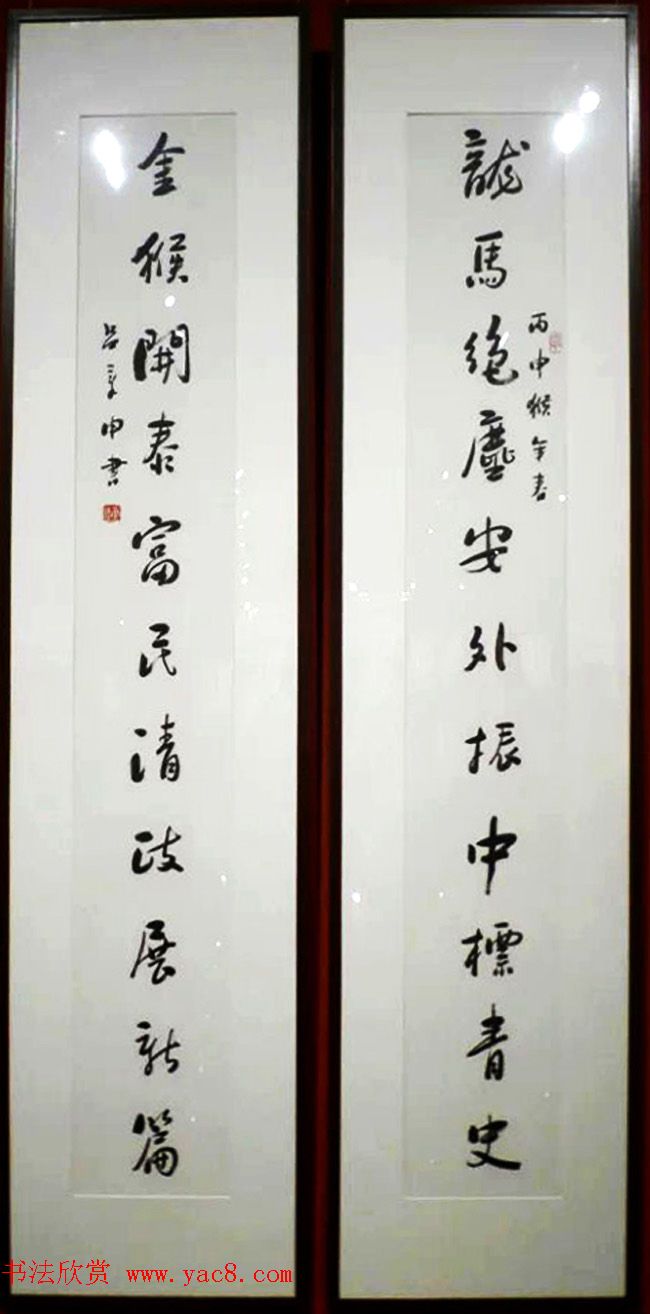 龍馬絕塵安外振中標青史
丙申猴年春
金猴開泰富民清政展新篇
吕章申書
书法欣赏 www.yac8.com